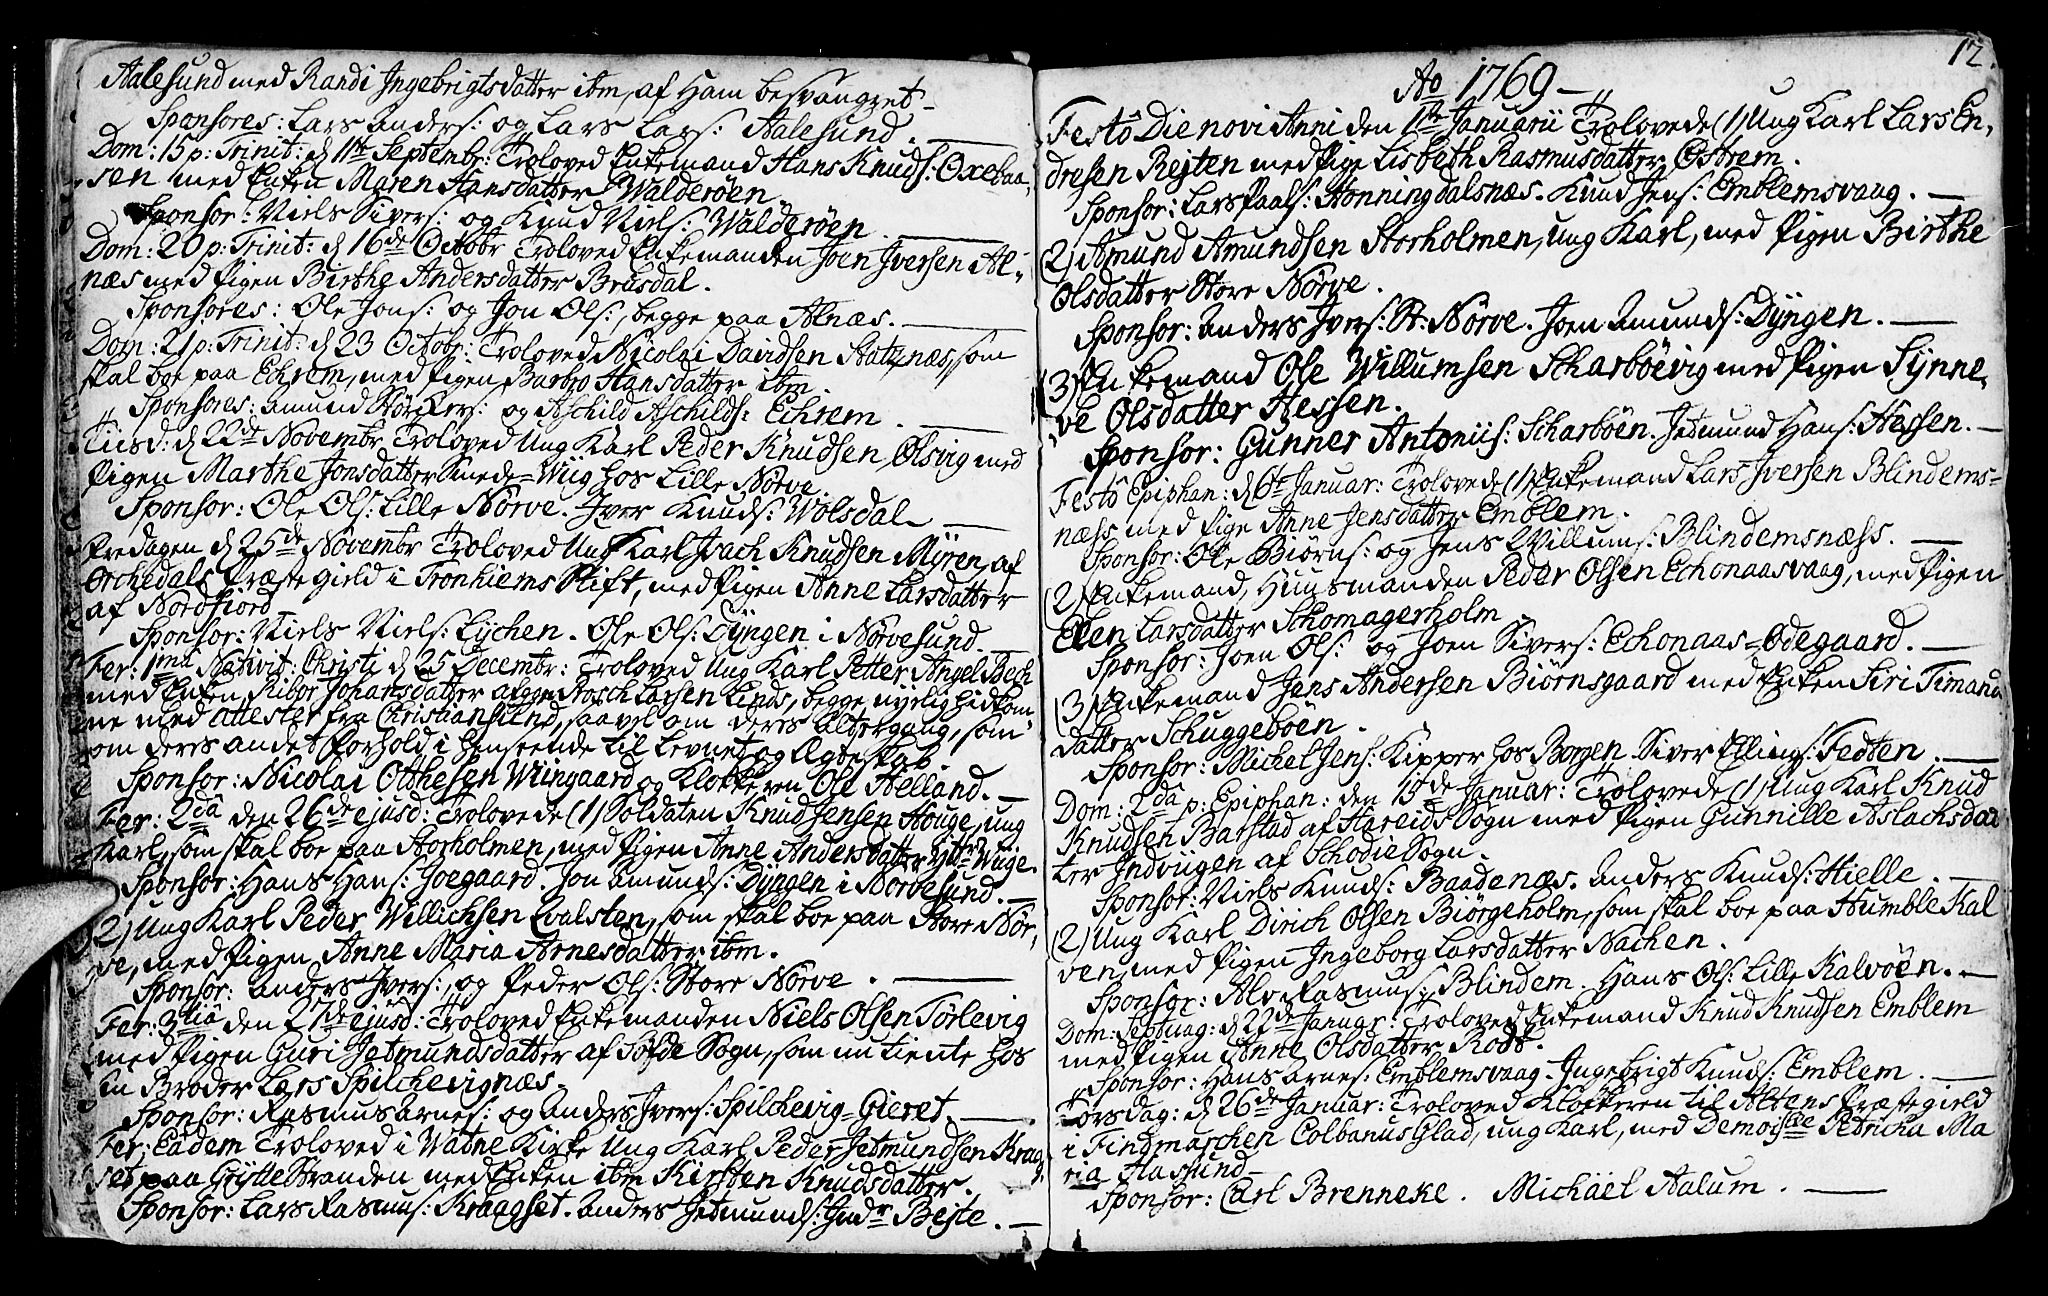 Aalesund med Randi Ingebrigtsdatter ibm, af Ham besvangret
Sponsores: Lars Anders: og Lars Lars: Aalesund.
Dom: 15 p: Trinit: d 11te Septembr: Troloved Enkemand Hans Knuds: Oxebaa-
sen med Enken Maren Hansdatter Walderöen.
Sponsor: Niels Sivers: og Knud Niels: Walderöen.
Dom: 20 p: Trinit: d 16de Octobr Troloved Enkemanden Joen Iversen Al-
næs med Pigen Birthe Andersdatter Brusdal.
Sponsores: Ole Jons: og Jon Ols:, begge paa Alnæs.
Dom: 21 p: Trinit: d 23 Octobr: Troloved Nicolai Davidsen Statznæs, som
skal boe paa Echrem, med Pigen Barbro Hansdatter ibm.
Sponsores: Amund Störckers: og Aschild Aschilds: Echrem.
Tiisd: d 22de Novembr Troloved Ung Karl Peder Knudsen Ølsvig med
Pigen Marthe Jonsdatter Smede-Wiig hos Lille Nörve
Sponsor: Ole Ols: Lille Nörve. Iver Knuds: Wolsdal
Fredagen d 25de Novembr Troloved Ung Karl Isach Knudsen Myren, af
Orchedals Præstegield i Tronhiems Stift, med Pigen Anne Larsdatter
af Nordfiord
Sponsor: Niels Niels: Eychen. Ole Ols: Dyngen i Nörvesund.
Fer: 1ma Nativit: Christi d 25 Decembr: Troloved Ung Karl Petter Angel Bech
med Enken Ribor Johansdatter afgge Larsen Linds, begge nylig hidkom-
ne med Attester fra Christianssund, saavel om deres Altergang, som
om deres andet Forhold i Henseende til Levnet og Ægteskab.
Sponsor: Nicolai Otthesen Wiingaard og Klokkeren Ole Helland.
Fer: 2da den 26de ejusd: Trolovede (1) Soldaten Knud Jensen Houge, ung
Karl, som skal boe paa Storholmen, med Pigen Anne Andersdatter Yttre-Wiige.
Sponsor: Hans Hans: Goegaard. Jon Amunds: Dyngen i Nörvesund.
(2) Ung Karl Peder Willichsen Qvalsten, som skal boe paa Store Nör-
ve, med Pigen Anne Maria Arnesdatter ibm.
Sponsor: Anders Ivers:, og Peder Ols: Store Nörve.
Fer: 3tia den 27de ejusd: Troloved Enkemanden Niels Olsen Törlevig
med Pigen Guri Jetmundsdatter af Söfde Sogn, som nu tiente hos
sin Broder Lars Spilchevignæs.
Sponsor: Rasmus Arnes: og Anders Ivers: Spilchevig-Gieret.
Fer: Eadem Troloved i Watne Kirke Ung Karl Peder Jetmundsen Kraag-
set paa Gryttestranden med Enken ibm Kirsten Knudsdatter
Sponsor: Lars Rasmus: Kraagset. Anders Jetmunds: Indr Bejte.
12.
Ao 1769
Festo Die novi Anni den 1te Januarii Trolovede (1) Ung Karl Lars En-
dresen Rejten med Pige Lisbeth Rasmusdatter Østrem.
Sponsor: Lars Paals: Honningdalsnæs. Knud Jens: Emblemsvaag.
(2) Amund Amundsen Storholmen, ung Karl, med Pigen Birthe
Olsdatter Store Nörve.
Sponsor: Anders Ivers: St: Nörve. Joen Amunds: Dyngen.
(3) Enkemand Ole Willumsen Scharböevig med Pigen Synne-
ve Olsdatter Hessen.
Sponsor: Gunner Antoniis: Scharböen. Jetmund Hans: Hessen.
Festo Epiphan: d 6te Januar: Trolovede (1) Enkemand Lars Iversen Blindems-
næss med Pige Anne Jensdatter Emblem.
Sponsor: Ole Biörns: og Jens Willums: Blindemsnæss.
(2) Enkemand, Huusmanden Peder Olsen Echonaasvaag, med Pigen
Elen Larsdatter Schomagerholm
Sponsor: Joen Ols: og Joen Sivers: Echonaas-Ødegaard.
(3) Enkemand Jens Andersen Biörnsgaard med Enken Siri Timand
datter Schuggeböen.
Sponsor: Michel Jens: Kipper hos Borgen. Siver Ellings: Fedten.
Dom: 2da p: Epiphan: den 15de Januar: Trolovede (1) Ung Karl Knud
Knudsen Barstad af Hareids Sogn med Pigen Gunnille Aslachsdat
ter Indvigen af Schodie Sogn.
Sponsor: Niels Knuds: Baadenæs. Anders Knuds: Hielle.
(2) Ung Karl Dirich Olsen Biörgeholm, som skal boe paa Humble Kal
ven, med Pigen Ingeborg Larsdatter Nachen.
Sponsor: Alv Rasmus: Blindem. Hans Ols: Lille Kalvöen.
Dom: Septuag: d 22de Januar: Troloved Enkemand Knud Knudsen Emblem
med Pigen Anne Olsdatter Rödt.
Sponsor: Hans Arnes: Emblemsvaag. Ingebrigt Knuds: Emblem.
Torsdag: d 26de Januar: Troloved Klockeren til Altens Præstegield
i Findmarchen Colbanus Glad, ung Karl, med Demoiselle Petricka Ma
ria Aasund
Sponsor: Carl Brenneke. Michael Aalum.